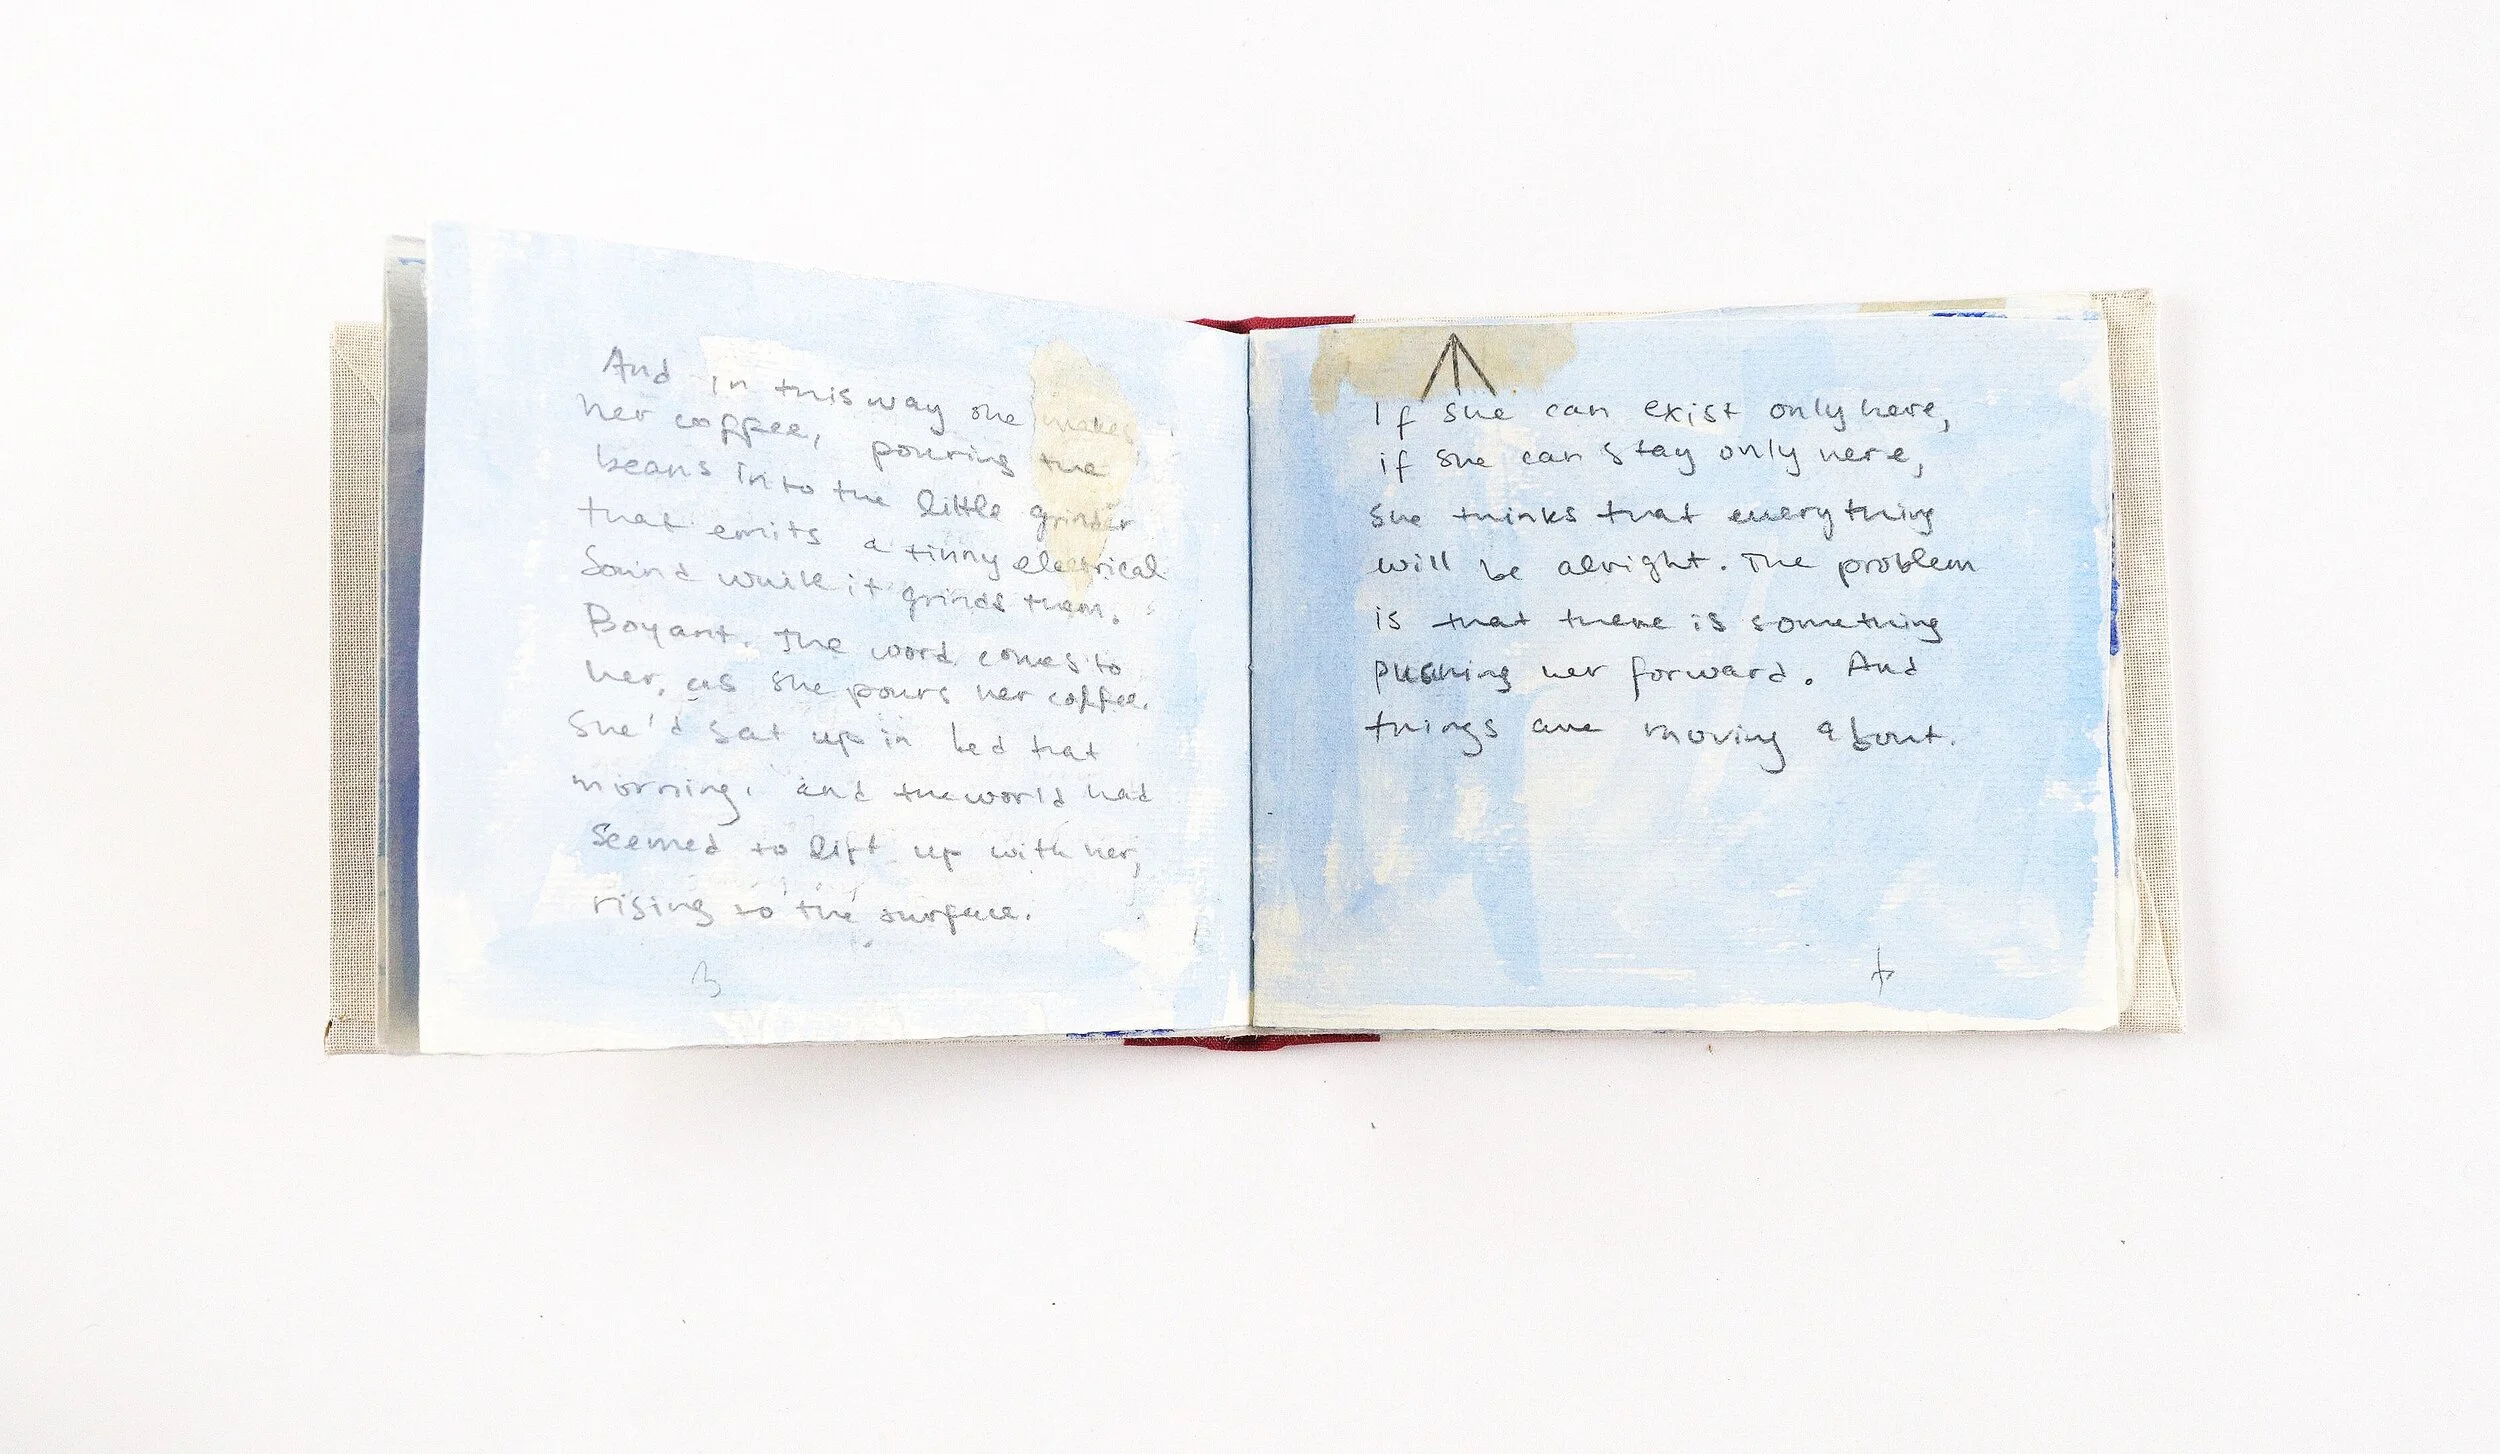 And in this way she makes
her coffee, pouring the
beans into the little grinder
that emits a tinny electrical
Sound while it grinds them.
Boyant. The word comes to
her, as she pours her coffee.
She'd sat up in bed that
morning, and the world had
seemed to lift up with her,
rising to the surface.
3
If she can exist only here,
if she can stay only here,
she thinks that everything
will be alright. The problem
is that there is something
pushing her forward. And
things are moving about.